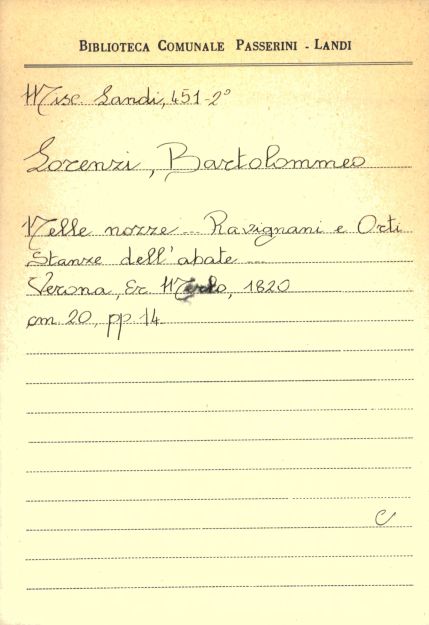 BIBLIOTECA COMUNALE PASSERINI - LANDI
Misc. Landi, 451-2°
Lorenzi, Bartolommeo
Nelle nozze ... Ravignani e Orti
Stanze dell'abate ...
Verona, Er. Merlo, 1820
cm 20, pp 14
C